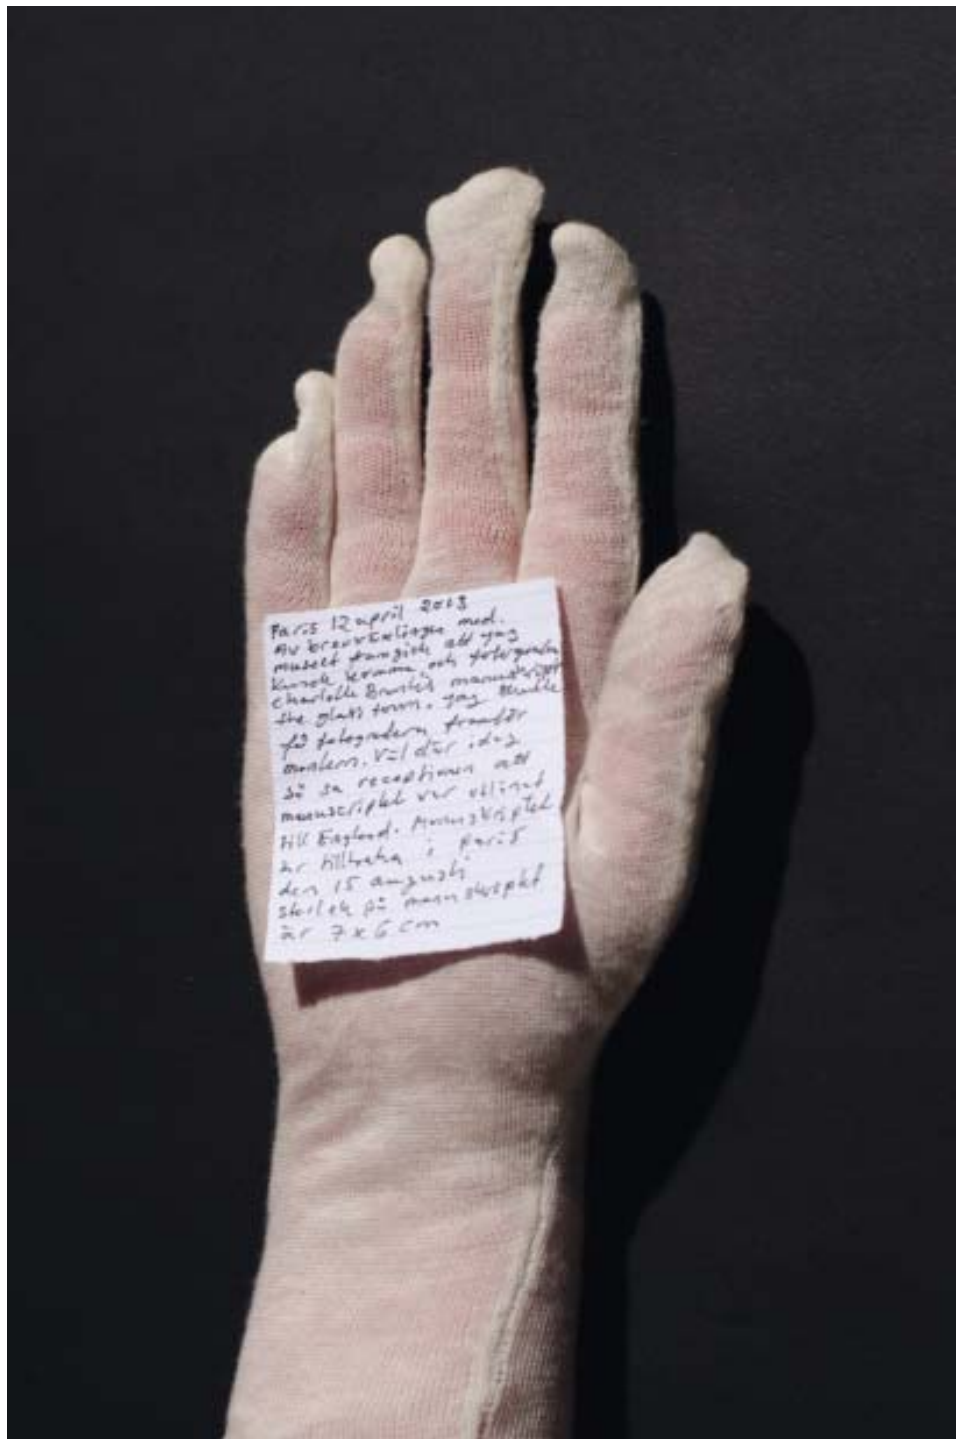 Paris 12 april 2013
Av brevväxlingen med
museet framgick att jag
kunde komma och fotografera
Charlotte Brontës manuskript
the glass town. Jag skulle
få fotografera framför
montern. Väl där idag
så sa receptionen att
manuscriptet var utlånat
till England. Manuskriptet
är tillbaka i Paris
den 15 augusti
storlek på manuskriptet
är 7 x 6 cm